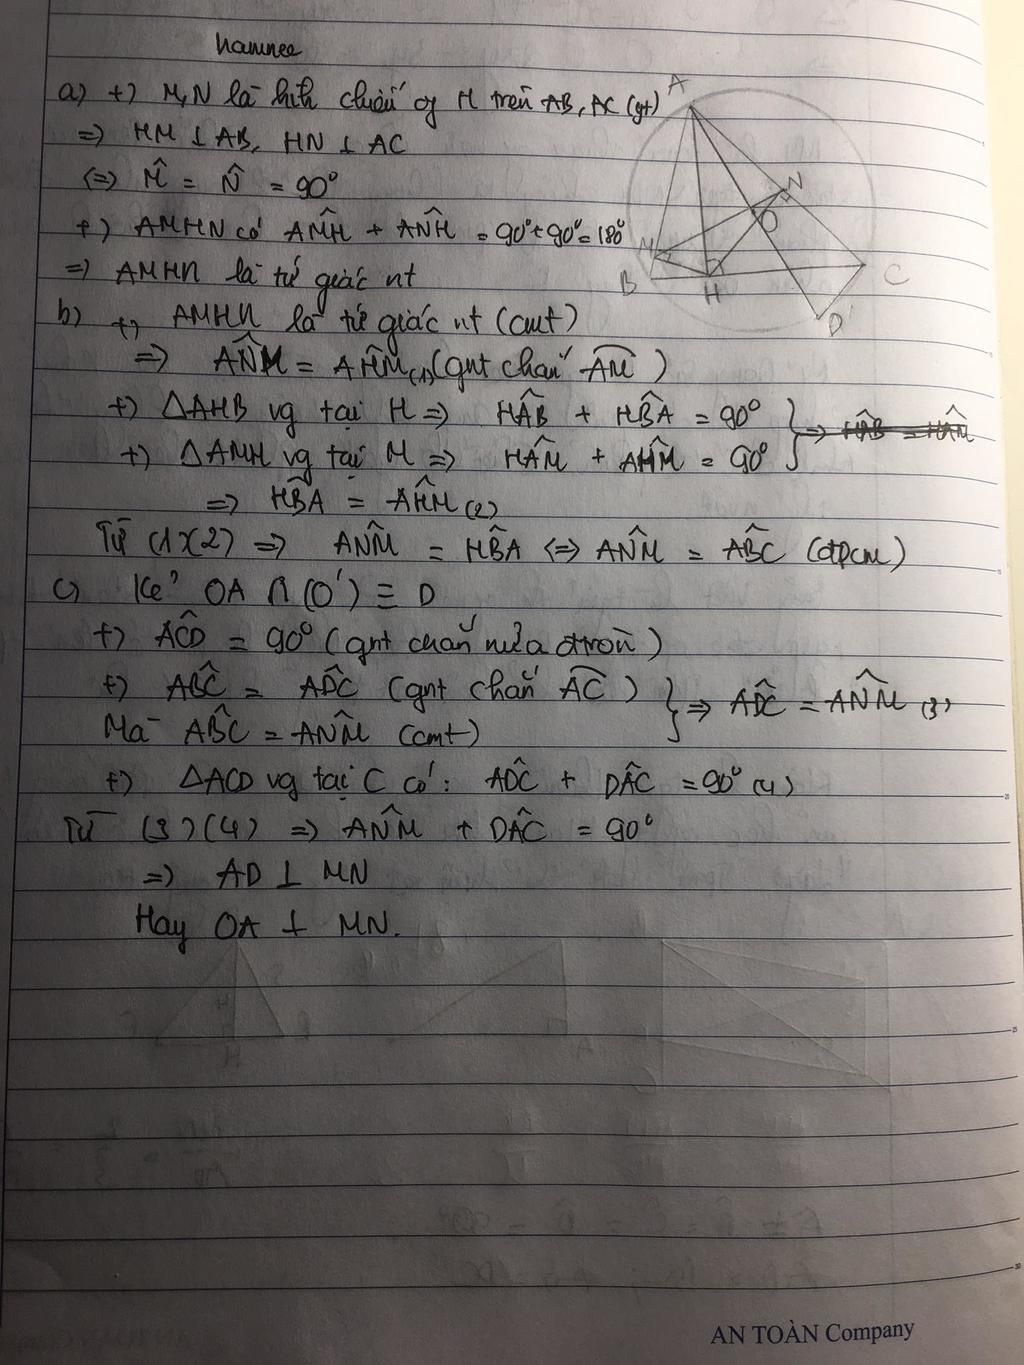 hamnee
a) +) M,N là hình chiếu of H trên AB, AC (gt)
=> HM ⊥ AB, HN ⊥ AC
<=> M̂ = N̂ = 90°
+) AMHN có AM̂H + AN̂H = 90°+90°=180°
=> AMHN là tứ giác nt
b) +) AMHN là tứ giác nt (cmt)
=> AN̂M = AĤM (1) (gnt chắn AM)
+) ΔAHB vg tại H => HÂB + HB̂A = 90°
+) ΔAMH vg tại M => HÂM + AĤM = 90° } => HÂB = HÂM
=> HB̂A = AĤM (2)
Từ (1)(2) => AN̂M = HB̂A <=> AN̂M = AB̂C (đpcm)
c) Kẻ OA ∩ (O') ≡ D
+) AĈD = 90° (gnt chắn nửa đtròn)
+) AB̂C = AD̂C (gnt chắn AC)
Mà AB̂C = AN̂M (cmt) } => AD̂C = AN̂M (3)
+) ΔACD vg tại C có: AD̂C + DÂC = 90° (4)
Từ (3)(4) => AN̂M + DÂC = 90°
=> AD ⊥ MN
Hay OA ⊥ MN.
A
N
O
M
B
H
C
D
AN TOÀN Company